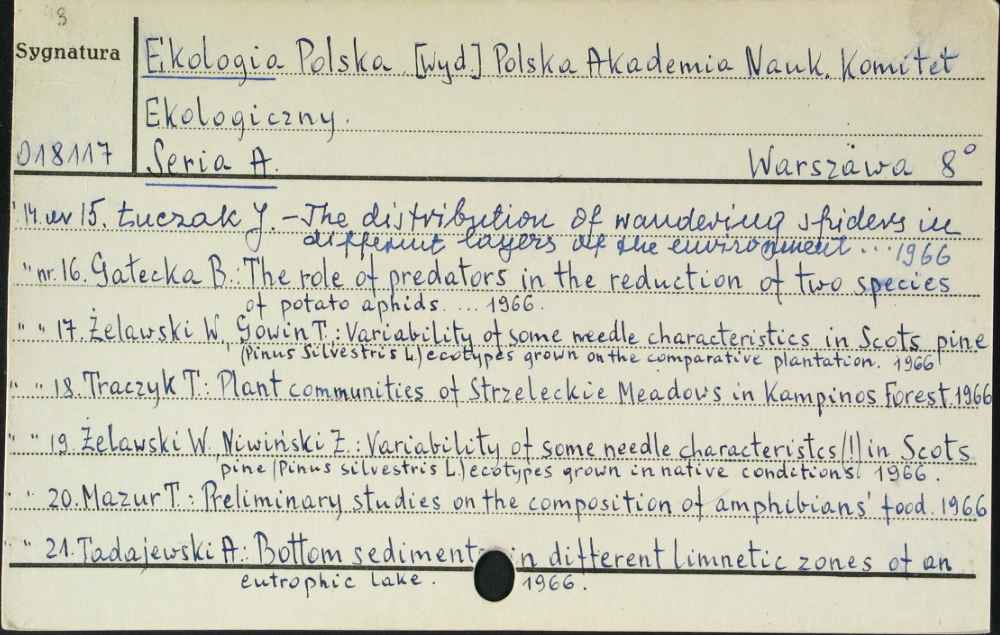 Sygnatura
Ekologia Polska [wyd] Polska Akademia Nauk. Komitet
Ekologiczny.
018117
Seria A. Warszawa 8°
14. nr 15. Łuczak J. - The distribution of wandering spiders in
different layers of the environment ... 1966
" nr. 16. Gałecka B.: The role of predators in the reduction of two species
of potato aphids. ... 1966.
" " 17. Żelawski W., Gowin T.: Variability of some needle characteristics in Scots pine
(Pinus Silvestris L) ecotypes grown on the comparative plantation. 1966
" " 18. Traczyk T.: Plant communities of Strzeleckie Meadows in Kampinos Forest. 1966
" " 19. Żelawski W., Niwiński Z.: Variability of some needle characteristcs (!) in Scots
pine (Pinus silvestris L.) ecotypes grown in native conditions. 1966.
" " 20. Mazur T.: Preliminary studies on the composition of amphibians' food. 1966
" " 21. Tadajewski A.: Bottom sediment in different limnetic zones of an
eutrophic lake. 1966.